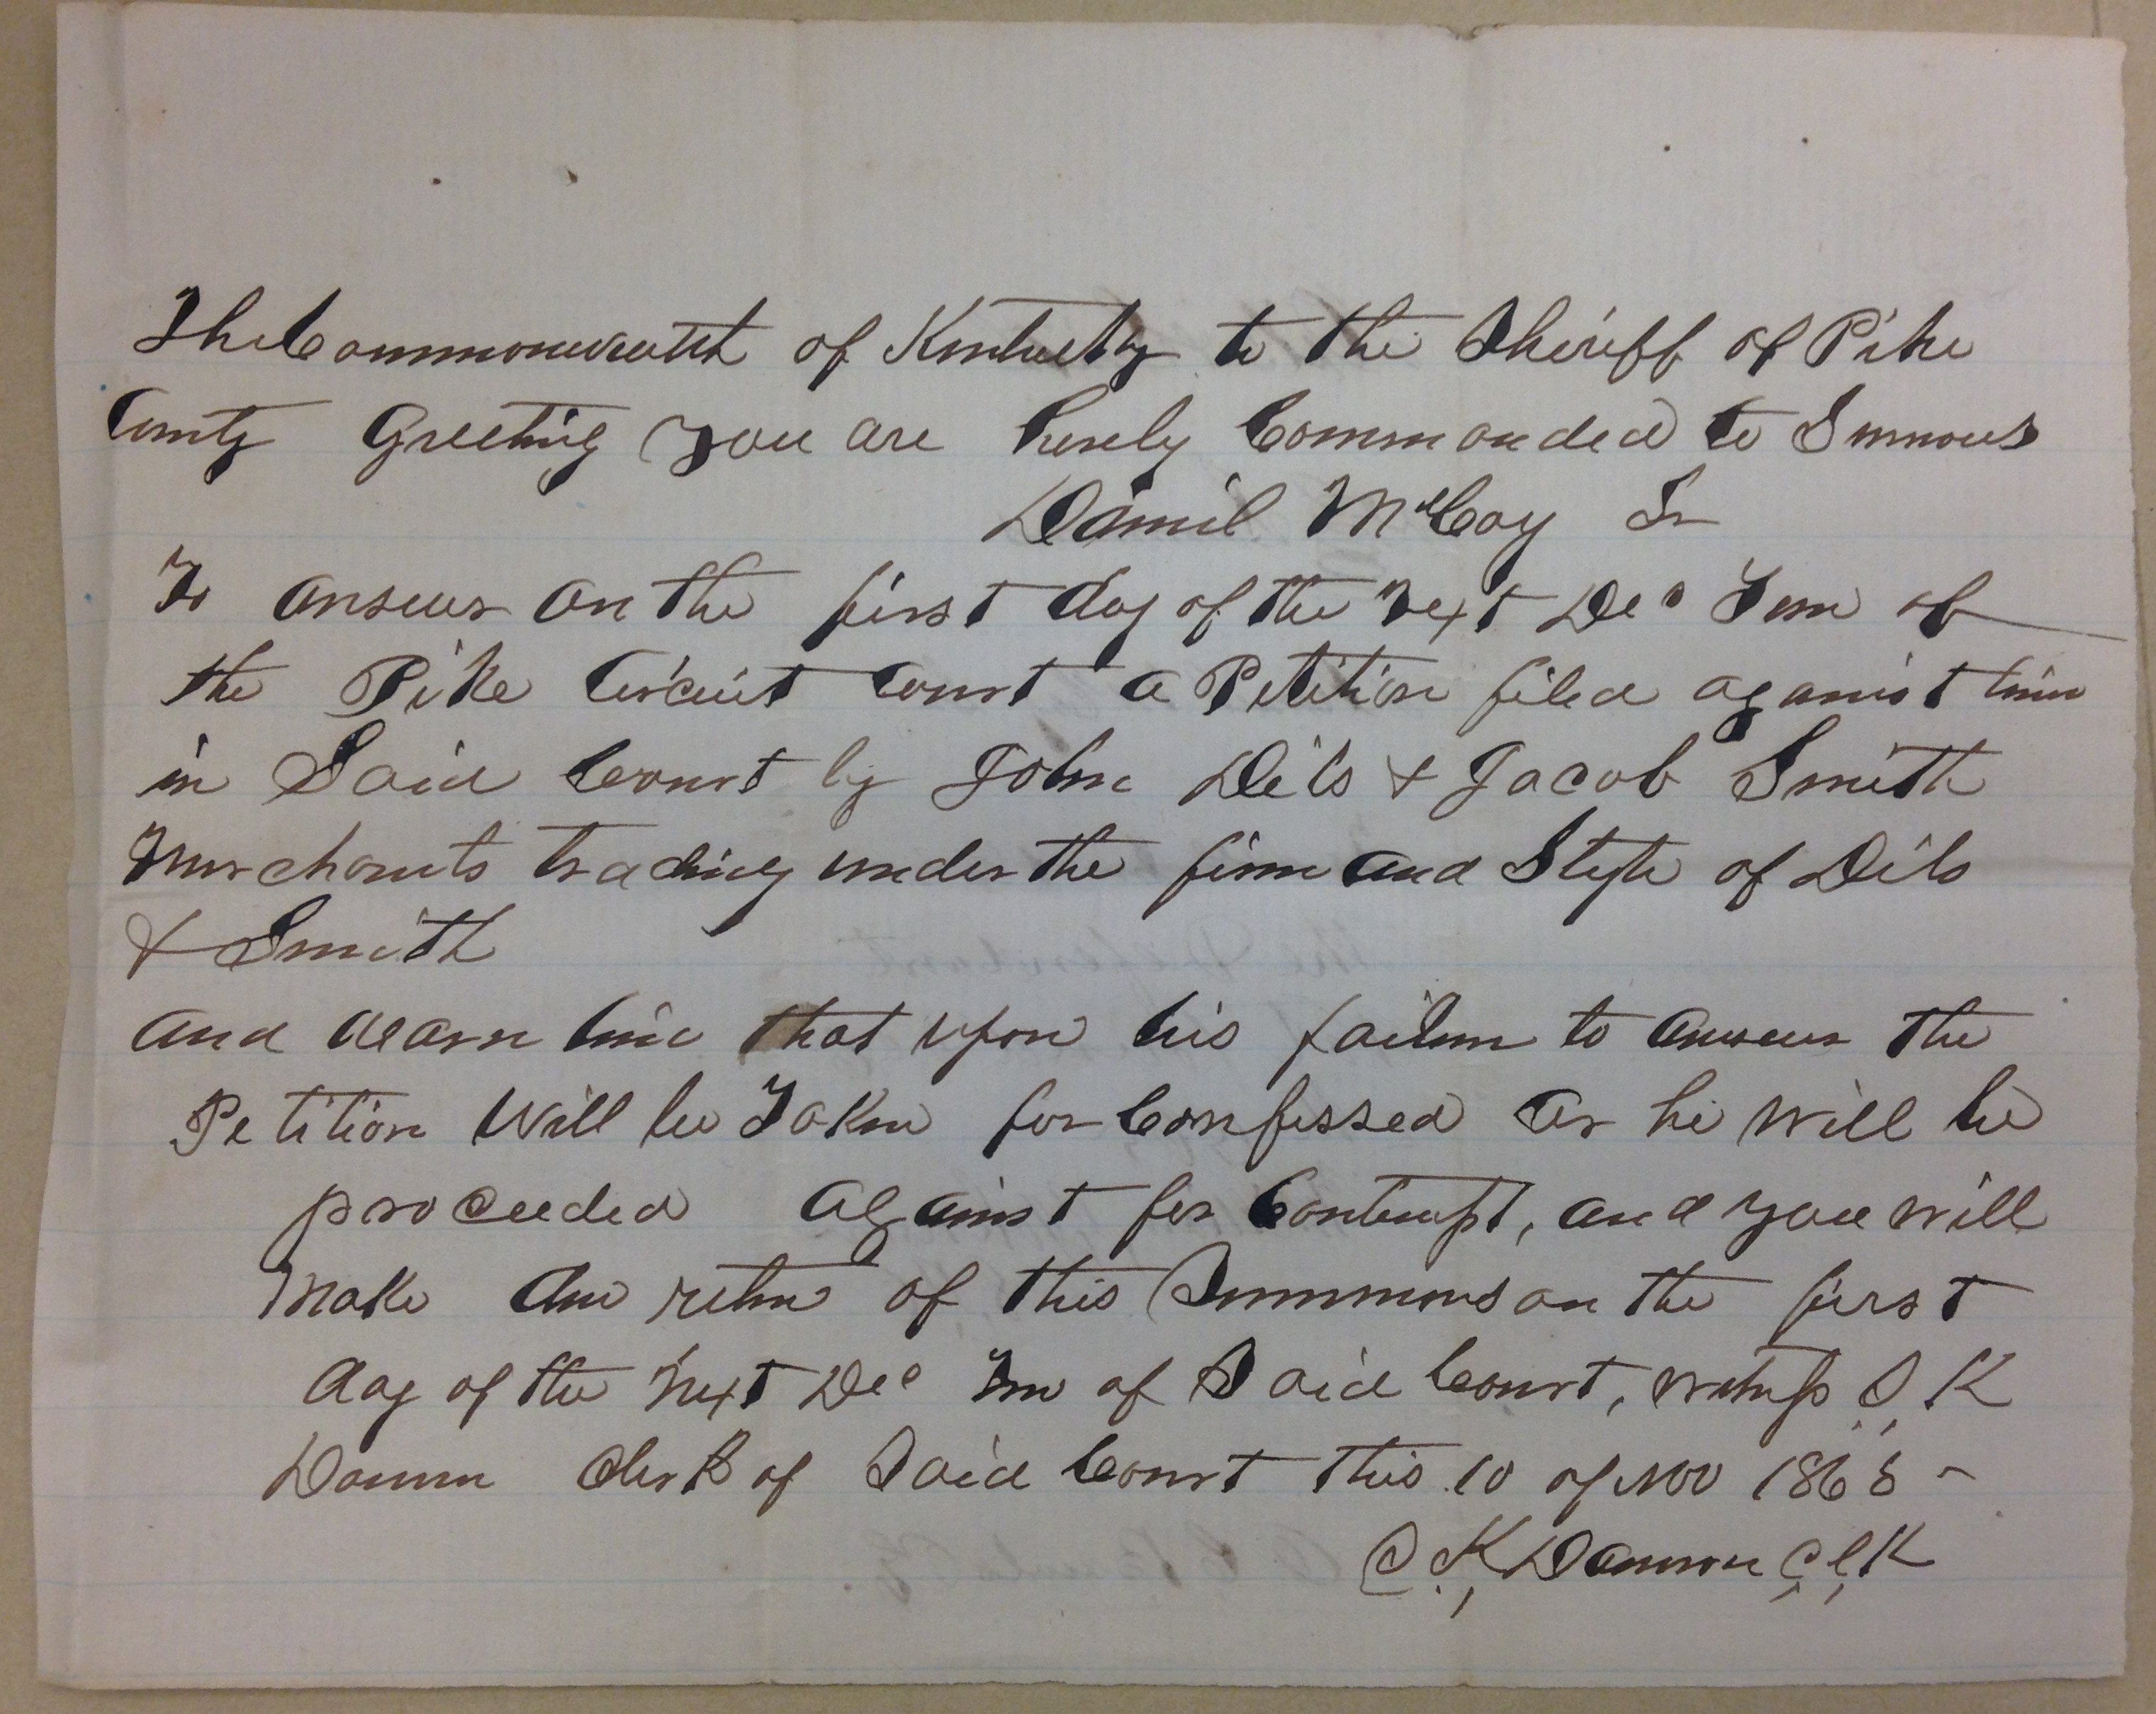 The Commonwealth of Kentucky to the Sheriff of Pike
County Greeting You are hereby Commanded to Summons
Daniel McCoy Sr
To answer on the first day of the next Dec Term of
the Pike Circuit Court a Petition filed against him
in Said Court by John Dils & Jacob Smith
Merchants trading under the firm and Style of Dils
& Smith
and warn him that upon his failure to answer the
Petition Will be Taken for Confessed or he will be
proceeded against for Contempt, and you will
Make due return of this Summons on the first
day of the next Dec Term of Said Court, witness K
Damron Clerk of Said Court this 10 of Nov 186
K Damron Clk